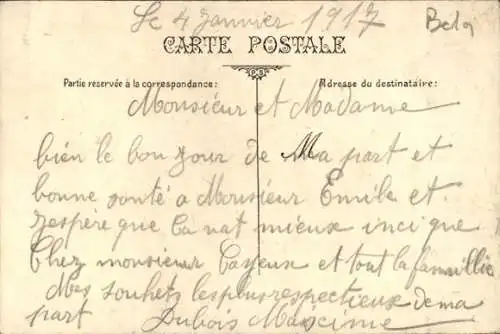 Le 4 Janvier 1917
Belg
CARTE POSTALE
Partie reservée à la correspondance :
Adresse du destinataire :
Monsieur et Madame
bien le bonjour de Ma part et
bonne sonté a Monsieur Emile et
Jespère que Ca nat mieux inci que
Chez monsieur Cayeux et tout la familli
Mes souhets les plus respectieux de ma
part Dubois Maxcime